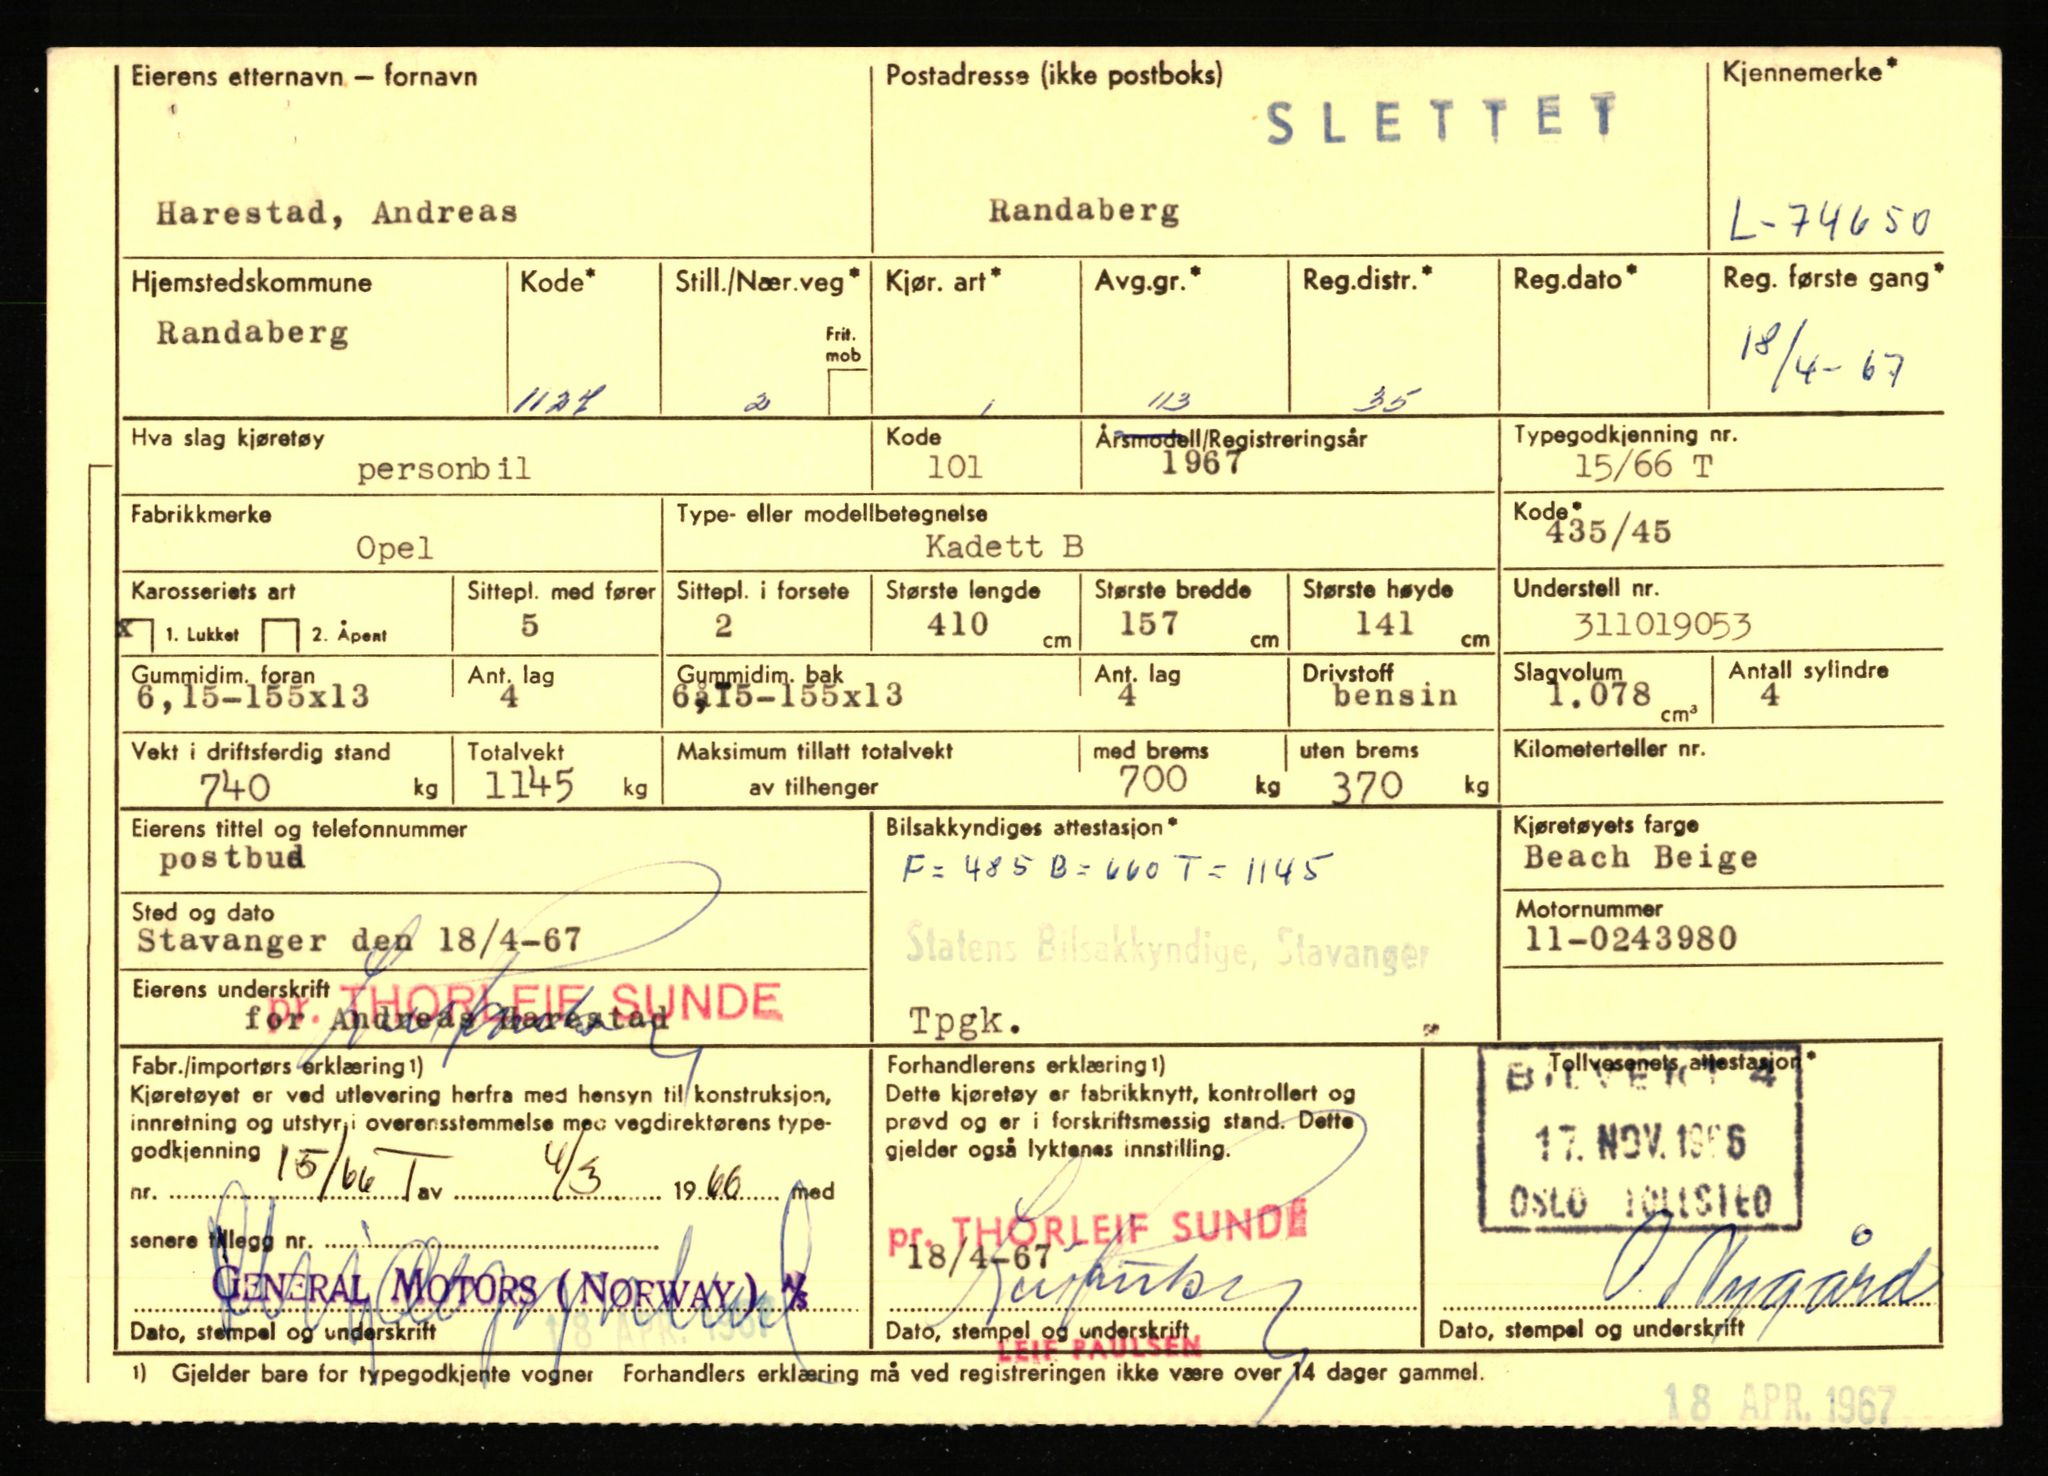 Eierens etternavn — fornavn
Postadresse (ikke postboks)
Kjennemerke*
SLETTET
Harestad, Andreas
Randaberg
L-74650
Hjemstedskommune
Kode*
Still./Nær.veg*
Kjør. art*
Avg.gr.*
Reg.distr.*
Reg.dato*
Reg. første gang*
Randaberg
Frit. mob
18/4-67
1127
2
1
113
35
Hva slag kjøretøy
Kode
Årsmodell/Registreringsår
Typegodkjenning nr.
personbil
101
1967
15/66 T
Fabrikkmerke
Type- eller modellbetegnelse
Kode*
Opel
Kadett B
435/45
Karosseriets art
Sittepl. med fører
Sittepl. i forsete
Største lengde
Største bredde
Største høyde
Understell nr.
x 1. Lukket 2. Åpent
5
2
410 cm
157 cm
141 cm
311019053
Gummidim. foran
Ant. lag
Gummidim. bak
Ant. lag
Drivstoff
Slagvolum
Antall sylindre
6,15-155x13
4
6,15-155x13
4
bensin
1.078 cm³
4
Vekt i driftsferdig stand
Totalvekt
Maksimum tillatt totalvekt
med brems
uten brems
Kilometerteller nr.
740 kg
1145 kg
av tilhenger
700 kg
370 kg
Eierens tittel og telefonnummer
Bilsakkyndiges attestasjon*
Kjøretøyets farge
postbud
F = 485 B = 660 T = 1145
Beach Beige
Sted og dato
Motornummer
Stavanger den 18/4-67
Statens Bilsakkyndige, Stavanger
11-0243980
Eierens underskrift
pr. THORLEIF SUNDE
for Andreas Harestad
Tpgk.
Fabr./importørs erklæring 1)
Kjøretøyet er ved utlevering herfra med hensyn til konstruksjon,
innretning og utstyr i overensstemmelse med vegdirektørens type-
godkjenning
nr. 15/66 T av 4/3 1966 med
senere tillegg nr.
GENERAL MOTORS (NORWAY) A/S
18 APR. 1967
Dato, stempel og underskrift
Forhandlerens erklæring 1)
Dette kjøretøy er fabrikknytt, kontrollert og
prøvd og er i forskriftsmessig stand. Dette
gjelder også lyktenes innstilling.
pr. THORLEIF SUNDE
18/4-67
Dato, stempel og underskrift
LEIF PAULSEN
Tollvesenets attestasjon*
BILVEKT 4
17. NOV. 1966
OSLO TOLLSTED
Nygård
Dato, stempel og underskrift
1) Gjelder bare for typegodkjente vogner Forhandlers erklæring må ved registreringen ikke være over 14 dager gammel.
18 APR. 1967